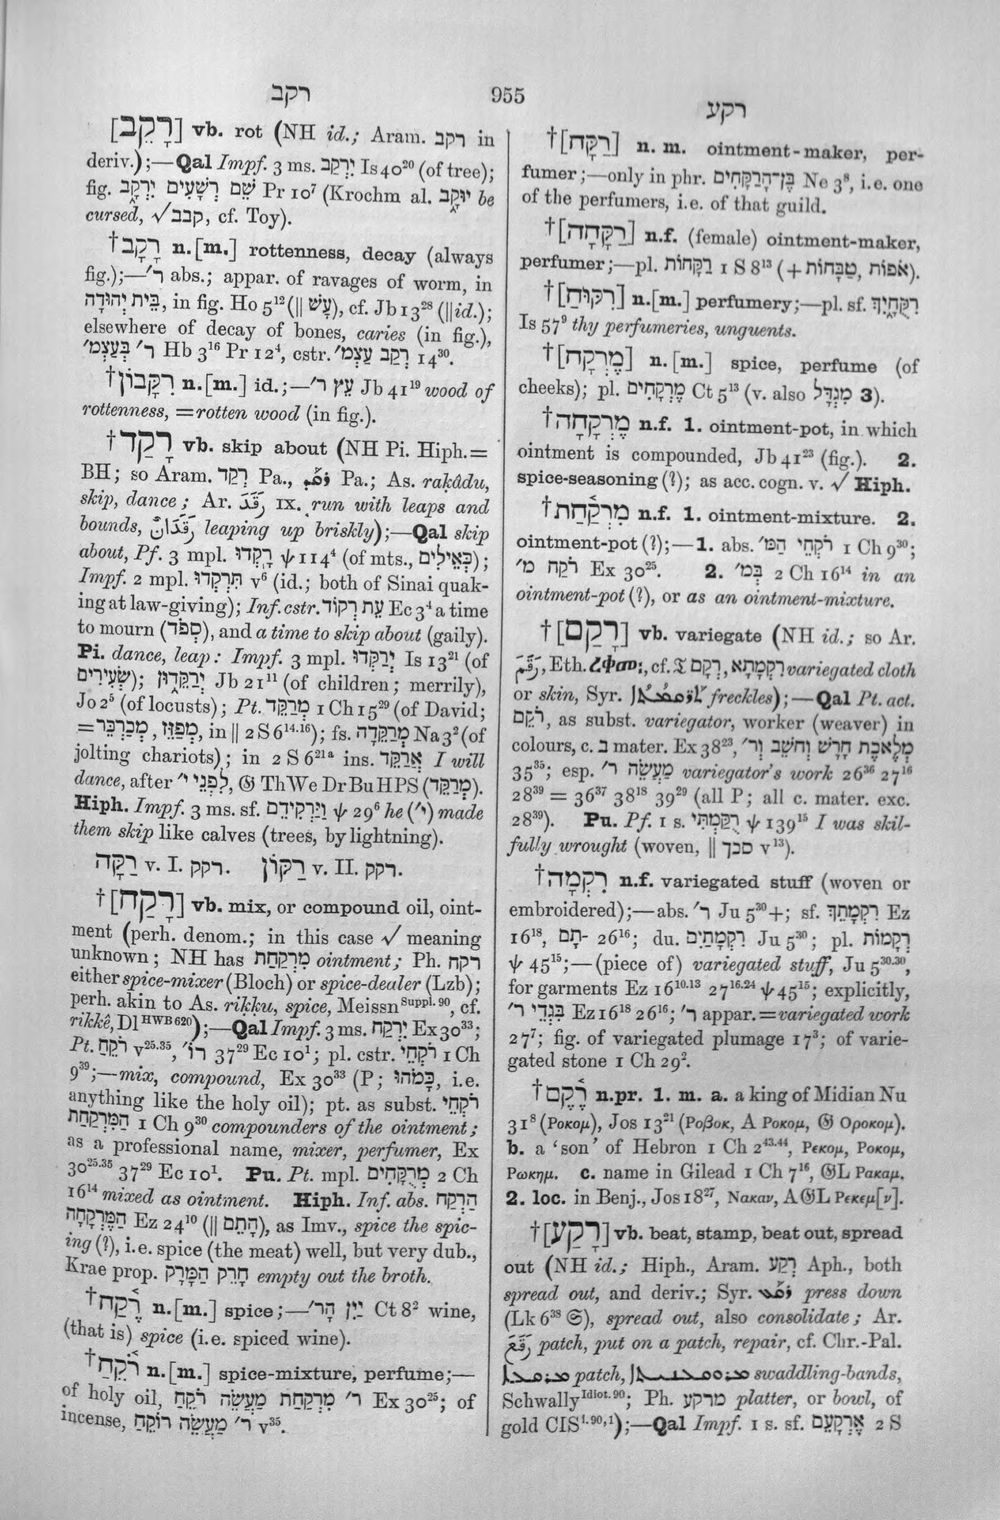 רקב
955
רקע
[רָקֵב] vb. rot (NH id.; Aram. רקב in
deriv.);—Qal Impf. 3 ms. יִרְקַב Is 40²⁰ (of tree);
fig. שֵׁם רְשָׁעִים יִרְקָ֑ב Pr 10⁷ (Krochm al. יוּקָ֑ב be
cursed, √קבב, cf. Toy).
†רָקָב n.[m.] rottenness, decay (always
fig.);—ר׳ abs.; appar. of ravages of worm, in
בֵּית יְהוּדָה, in fig. Ho 5¹² (‖ עָשׁ), cf. Jb 13²⁸ (‖id.);
elsewhere of decay of bones, caries (in fig.),
ר׳ בְּעַצְמ׳ Hb 3¹⁶ Pr 12⁴, cstr. רְקַב עֲצָמ׳ 14³⁰.
†רִקָּבוֹן n.[m.] id.;—עֵץ ר׳ Jb 41¹⁹ wood of
rottenness, =rotten wood (in fig.).
†רָקַד vb. skip about (NH Pi. Hiph.=
BH; so Aram. רְקַד Pa., ܪܩܕ Pa.; As. raḳâdu,
skip, dance; Ar. رَقَدَ IX. run with leaps and
bounds, رَقَدَانٌ leaping up briskly);—Qal skip
about, Pf. 3 mpl. רָקְדוּ ψ 114⁴ (of mts., כְאֵילִים);
Impf. 2 mpl. תִּרְקְדוּ v⁶ (id.; both of Sinai quak-
ing at law-giving); Inf. cstr. עֵת רְקוֹד Ec 3⁴ a time
to mourn (סְפֹד), and a time to skip about (gaily).
Pi. dance, leap: Impf. 3 mpl. יְרַקְּדוּ Is 13²¹ (of
שְׂעִירִים); יְרַקֵּד֑וּן Jb 21¹¹ (of children; merrily),
Jo 2⁵ (of locusts); Pt. מְרַקֵּד 1 Ch 15²⁹ (of David;
=מְפַזֵּז, מְכַרְכֵּר, in ‖ 2 S 6¹⁴·¹⁶); fs. מְרַקֵּדָה Na 3² (of
jolting chariots); in 2 S 6²¹ᵃ ins. אֲרַקֵּד I will
dance, after לִפְנֵי י׳, 𝔊 Th We Dr Bu HPS (מְרַקֵּד).
Hiph. Impf. 3 ms. sf. וַיַּרְקִידֵם ψ 29⁶ he (י׳) made
them skip like calves (trees, by lightning).
רַקָּה v. I. רקק. רַקּוֹן v. II. רקק.
†[רָקַח] vb. mix, or compound oil, oint-
ment (perh. denom.; in this case √ meaning
unknown; NH has מִרְקַחַת ointment; Ph. רקח
either spice-mixer (Bloch) or spice-dealer (Lzb);
perh. akin to As. riḳḳu, spice, Meissn Suppl. 90, cf.
rikkê, Dl HWB 620);—Qal Impf. 3 ms. יִרְקַח Ex 30³³;
Pt. רֹקֵחַ v²⁵·³⁵, רוֹ׳ 37²⁹ Ec 10¹; pl. cstr. רֹקְחֵי 1 Ch
9³⁰;—mix, compound, Ex 30³³ (P; כָּמֹהוּ, i.e.
anything like the holy oil); pt. as subst. רֹקְחֵי
הַמִּרְקַחַת 1 Ch 9³⁰ compounders of the ointment;
as a professional name, mixer, perfumer, Ex
30²⁵·³⁵ 37²⁹ Ec 10¹. Pu. Pt. mpl. מְרֻקָּחִים 2 Ch
16¹⁴ mixed as ointment. Hiph. Inf. abs. הַרְקַח
הַמֶּרְקָחָה Ez 24¹⁰ (‖ הָתֵם), as Imv., spice the spic-
ing (?), i.e. spice (the meat) well, but very dub.,
Krae prop. הָרֵק הַמָּרָק empty out the broth.
†רֶ֫קַח n.[m.] spice;—יַיִן הָר׳ Ct 8² wine,
(that is) spice (i.e. spiced wine).
†רֹ֫קַח n.[m.] spice-mixture, perfume;—
of holy oil, ר׳ מִרְקַחַת מַעֲשֵׂה רֹקֵחַ Ex 30²⁵; of
incense, ר׳ מַעֲשֵׂה רוֹקֵחַ v³⁵.
†[רַקָּח] n. m. ointment-maker, per-
fumer;—only in phr. בֶּן־הָרַקָּחִים Ne 3⁸, i.e. one
of the perfumers, i.e. of that guild.
†[רַקָּחָה] n.f. (female) ointment-maker,
perfumer;—pl. רַקָּחוֹת 1 S 8¹³ (+ טַבָּחוֹת, אֹפוֹת).
†[רִקּוּחַ] n.[m.] perfumery;—pl. sf. רִקֻּחָ֑יִךְ
Is 57⁹ thy perfumeries, unguents.
†[מֶרְקָח] n.[m.] spice, perfume (of
cheeks); pl. מֶרְקָחִים Ct 5¹³ (v. also מִגְדָּל 3).
†מֶרְקָחָה n.f. 1. ointment-pot, in which
ointment is compounded, Jb 41²³ (fig.). 2.
spice-seasoning (?); as acc. cogn. v. √ Hiph.
†מִרְקַ֫חַת n.f. 1. ointment-mixture. 2.
ointment-pot (?);—1. abs. רֹקְחֵי הַמּ׳ 1 Ch 9³⁰;
רֹקַח מ׳ Ex 30²⁵. 2. בְּמ׳ 2 Ch 16¹⁴ in an
ointment-pot (?), or as an ointment-mixture.
†[רָקַם] vb. variegate (NH id.; so Ar.
رَقَمَ, Eth. ረቀመ:, cf. 𝔗 רְקַם, רִקְמָתָא variegated cloth
or skin, Syr. freckles);—Qal Pt. act.
רֹקֵם, as subst. variegator, worker (weaver) in
colours, c. בְּ mater. Ex 38²³, מְלֶאכֶת חָרָשׁ וְחֹשֵׁב וְר׳
35³⁵; esp. מַעֲשֵׂה ר׳ variegator's work 26³⁶ 27¹⁶
28³⁹ = 36³⁷ 38¹⁸ 39²⁹ (all P; all c. mater. exc.
28³⁹). Pu. Pf. 1 s. רֻקַּמְתִּי ψ 139¹⁵ I was skil-
fully wrought (woven, ‖ סכך v¹³).
†רִקְמָה n.f. variegated stuff (woven or
embroidered);—abs. ר׳ Ju 5³⁰+; sf. רִקְמָתֵךְ Ez
16¹⁸, ־תָם 26¹⁶; du. רִקְמָתַיִם Ju 5³⁰; pl. רְקָמוֹת
ψ 45¹⁵;—(piece of) variegated stuff, Ju 5³⁰·³⁰,
for garments Ez 16¹⁰·¹³ 27¹⁶·²⁴ ψ 45¹⁵; explicitly,
בִּגְדֵי ר׳ Ez 16¹⁸ 26¹⁶; ר׳ appar.=variegated work
27⁷; fig. of variegated plumage 17³; of varie-
gated stone 1 Ch 29².
†רֶ֫קֶם n.pr. 1. m. a. a king of Midian Nu
31⁸ (Ροκομ), Jos 13²¹ (Ροβοκ, A Ροκομ, 𝔊 Οροκομ).
b. a ‘son’ of Hebron 1 Ch 2⁴³·⁴⁴, Ρεκομ, Ροκομ,
Ρωκημ. c. name in Gilead 1 Ch 7¹⁶, 𝔊L Ρακαμ.
2. loc. in Benj., Jos 18²⁷, Νακαν, A𝔊L Ρεκεμ[ν].
†[רָקַע] vb. beat, stamp, beat out, spread
out (NH id.; Hiph., Aram. רְקַע Aph., both
spread out, and deriv.; Syr. ܪܩܥ press down
(Lk 6³⁸ 𝔖), spread out, also consolidate; Ar.
رَقَعَ patch, put on a patch, repair, cf. Chr.-Pal.
patch, swaddling-bands,
Schwally Idiot. 90; Ph. מרקע platter, or bowl, of
gold CIS I. 90, 1);—Qal Impf. 1 s. sf. אֶרְקָעֵם 2 S